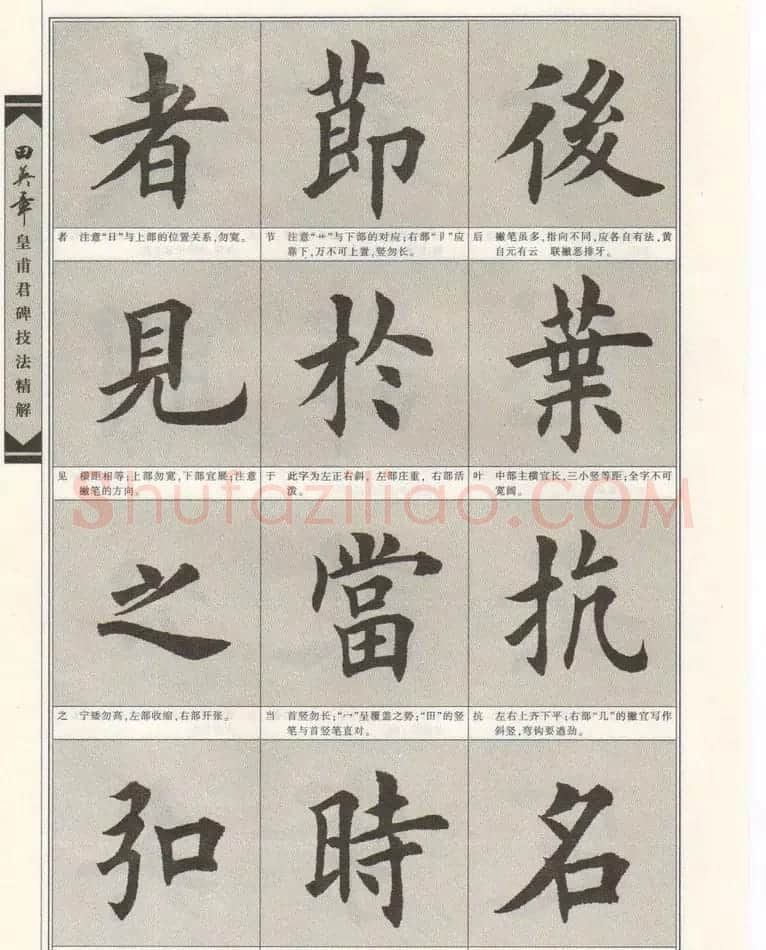 田英章
皇甫君碑技法精解
者
莭
後
者 注意“日”与上部的位置关系,勿宽。
节 注意“艹”与下部的对应;右部“卩”应
靠下,万不可上置,竖勿长。
后 撇笔虽多,指向不同,应各自有法,黄
自元有云 联撇恶排牙。
見
於
葉
见 横距相等;上部勿宽,下部宜展;注意
撇笔的方向。
于 此字为左正右斜,左部庄重,右部活
泼。
叶 中部主横宜长,三小竖等距;全字不可
宽阔。
shufaziliao.COM
之
當
抗
之 宁矮勿高,左部收缩,右部开张。
当 首竖勿长;“冖”呈覆盖之势;“田”的竖
笔与首竖笔直对。
抗 左右上齐下平;右部“几”的撇宜写作
斜竖,弯钩要遒劲。
弘
時
名